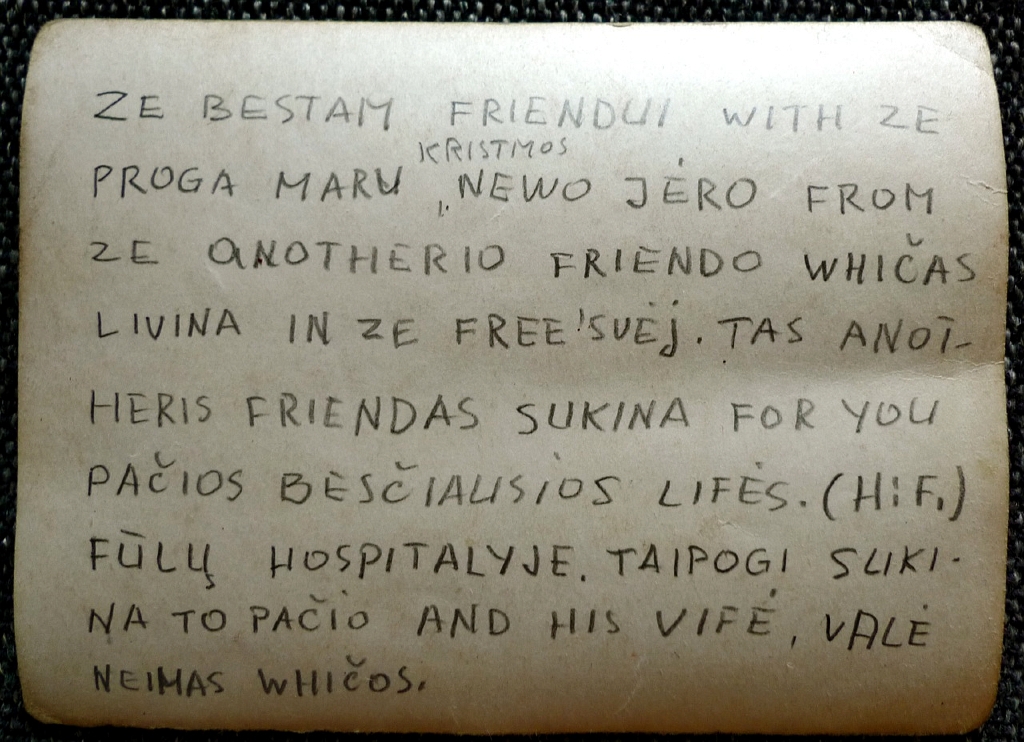 ZE BESTAM FRIENDUI WITH ZE
KRISTMOS
PROGA MARU, NEWO JĖRO FROM
ZE ANOTHERIO FRIENDO WHIČAS
LIVINA IN ZE FREE'SVĖJ. TAS ANOT-
HERIS FRIENDAS SUKINA FOR YOU
PAČIOS BESČIAUSIOS LIFĖS. (H:F.)
FŪLŲ HOSPITALYJE. TAIPOGI SUKI-
NA TO PAČIO AND HIS VIFĖ, VALĖ
NEIMAS WHIČOS.